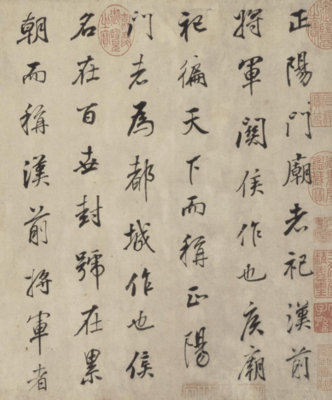 正陽門廟者祀漢前
將軍關侯作也侯廟
祀徧天下而稱正陽
門者為都城作也侯
名在百世封號在累
朝而稱漢前將軍者